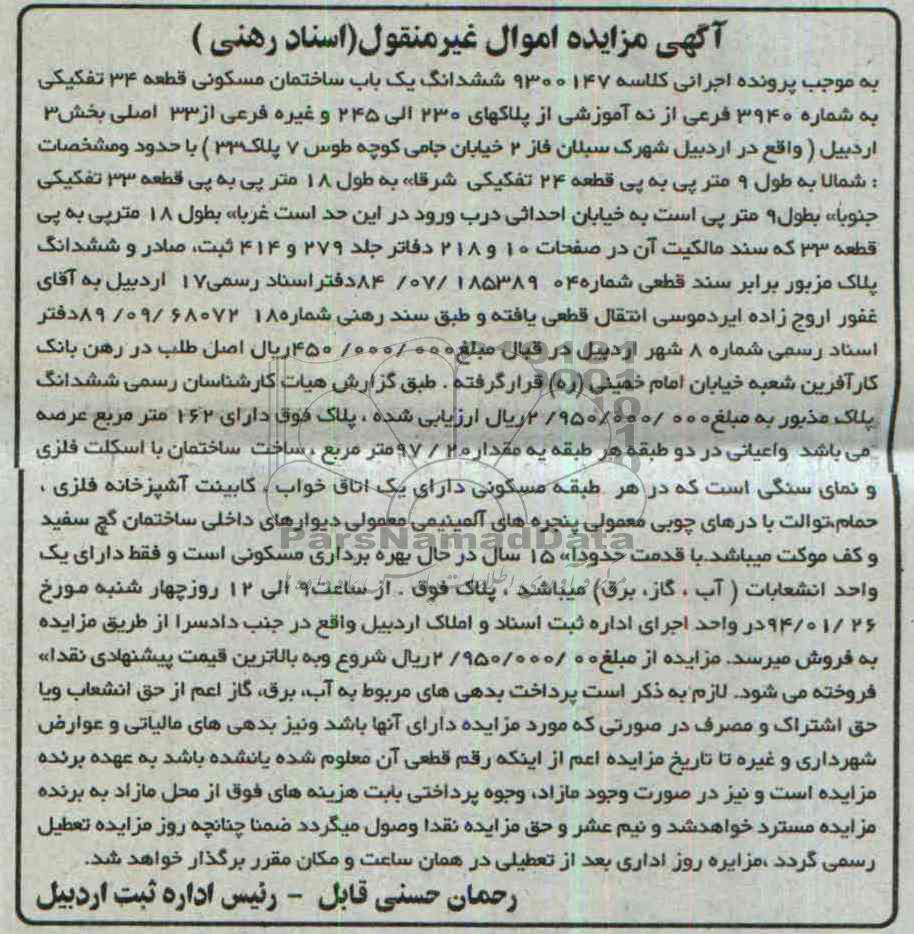 آگهی مزایده اموال غیرمنقول(اسناد رهنی )
به موجب پرونده اجرائی کلاسه ۹۳۰۰۱۴۷ ششدانگ یک باب ساختمان مسکونی قطعه ۳۴ تفکیکی
به شماره ۳۹۴۰ فرعی از نه آموزشی از پلاکهای ۲۳۰ الی ۲۴۵ و غیره فرعی از۳۳ اصلی بخش۳
اردبیل ( واقع در اردبیل شهرک سبلان فاز ۲ خیابان جامی کوچه طوس ۷ پلاک۳۳ ) با حدود ومشخصات
: شمالا به طول ۹ متر پی به پی قطعه ۲۴ تفکیکی شرقا» به طول ۱۸ متر پی به پی قطعه ۳۳ تفکیکی
جنوبا» بطول۹ متر پی است به خیابان احداثی درب ورود در این حد است غربا» بطول ۱۸ مترپی به پی
قطعه ۳۳ که سند مالکیت آن در صفحات ۱۰ و۲۱۸ دفاتر جلد ۲۷۹ و ۴۱۴ ثبت، صادر و ششدانگ
پلاک مزبور برابر سند قطعی شماره۰۴ ۱۸۵۳۸۹ /۰۷/ ۸۴دفتراسناد رسمی۱۷ اردبیل به آقای
غفور اروج زاده ایردموسی انتقال قطعی یافته و طبق سند رهنی شماره۱۸ ۶۸۰۷۲ /۰۹/ ۸۹دفتر
اسناد رسمی شماره ۸ شهر اردبیل در قبال مبلغ۰۰۰/ ۰۰۰/ ۴۵۰ریال اصل طلب در رهن بانک
کارآفرین شعبه خیابان امام خمینی (ره) قرارگرفته . طبق گزارش هیات کارشناسان رسمی ششدانگ
پلاک مذبور به مبلغ۰۰۰ /۰۰۰/ ۲/۹۵۰ریال ارزیابی شده ، پلاک فوق دارای ۱۶۲ متر مربع عرصه
می باشد واعیانی در دو طبقه هر طبقه به مقدار۲۰ / ۹۷متر مربع ، ساخت ساختمان با اسکلت فلزی
و نمای سنگی است که در هر طبقه مسکونی دارای یک اتاق خواب ، کابینت آشپزخانه فلزی ،
حمام،توالت با درهای چوبی معمولی پنجره های آلمینیمی معمولی دیوارهای داخلی ساختمان گچ سفید
و کف موکت میباشد.با قدمت حدودا» ۱۵ سال در حال بهره برداری مسکونی است و فقط دارای یک
واحد انشعابات ( آب ، گاز، برق) میباشد ، پلاک فوق . از ساعت۹ الی ۱۲ روزچهار شنبه مورخ
۲۶ /۹۴/۰۱در واحد اجرای اداره ثبت اسناد و املاک اردبیل واقع در جنب دادسرا از طریق مزایده
به فروش میرسد. مزایده از مبلغ۰۰ /۰۰۰/ ۲/۹۵۰ریال شروع وبه بالاترین قیمت پیشنهادی نقدا»
فروخته می شود. لازم به ذکر است پرداخت بدهی های مربوط به آب، برق، گاز اعم از حق انشعاب ویا
حق اشتراک و مصرف در صورتی که مورد مزایده دارای آنها باشد ونیز بدهی های مالیاتی و عوارض
شهرداری و غیره تا تاریخ مزایده اعم از اینکه رقم قطعی آن معلوم شده یانشده باشد به عهده برنده
مزایده است و نیز در صورت وجود مازاد، وجوه پرداختی بابت هزینه های فوق از محل مازاد به برنده
مزایده مسترد خواهدشد و نیم عشر و حق مزایده نقدا وصول میگردد ضمنا چنانچه روز مزایده تعطیل
رسمی گردد ،مزایره روز اداری بعد از تعطیلی در همان ساعت و مکان مقرر برگذار خواهد شد.
رحمان حسنی قابل - رئیس اداره ثبت اردبیل
ParsNamadData